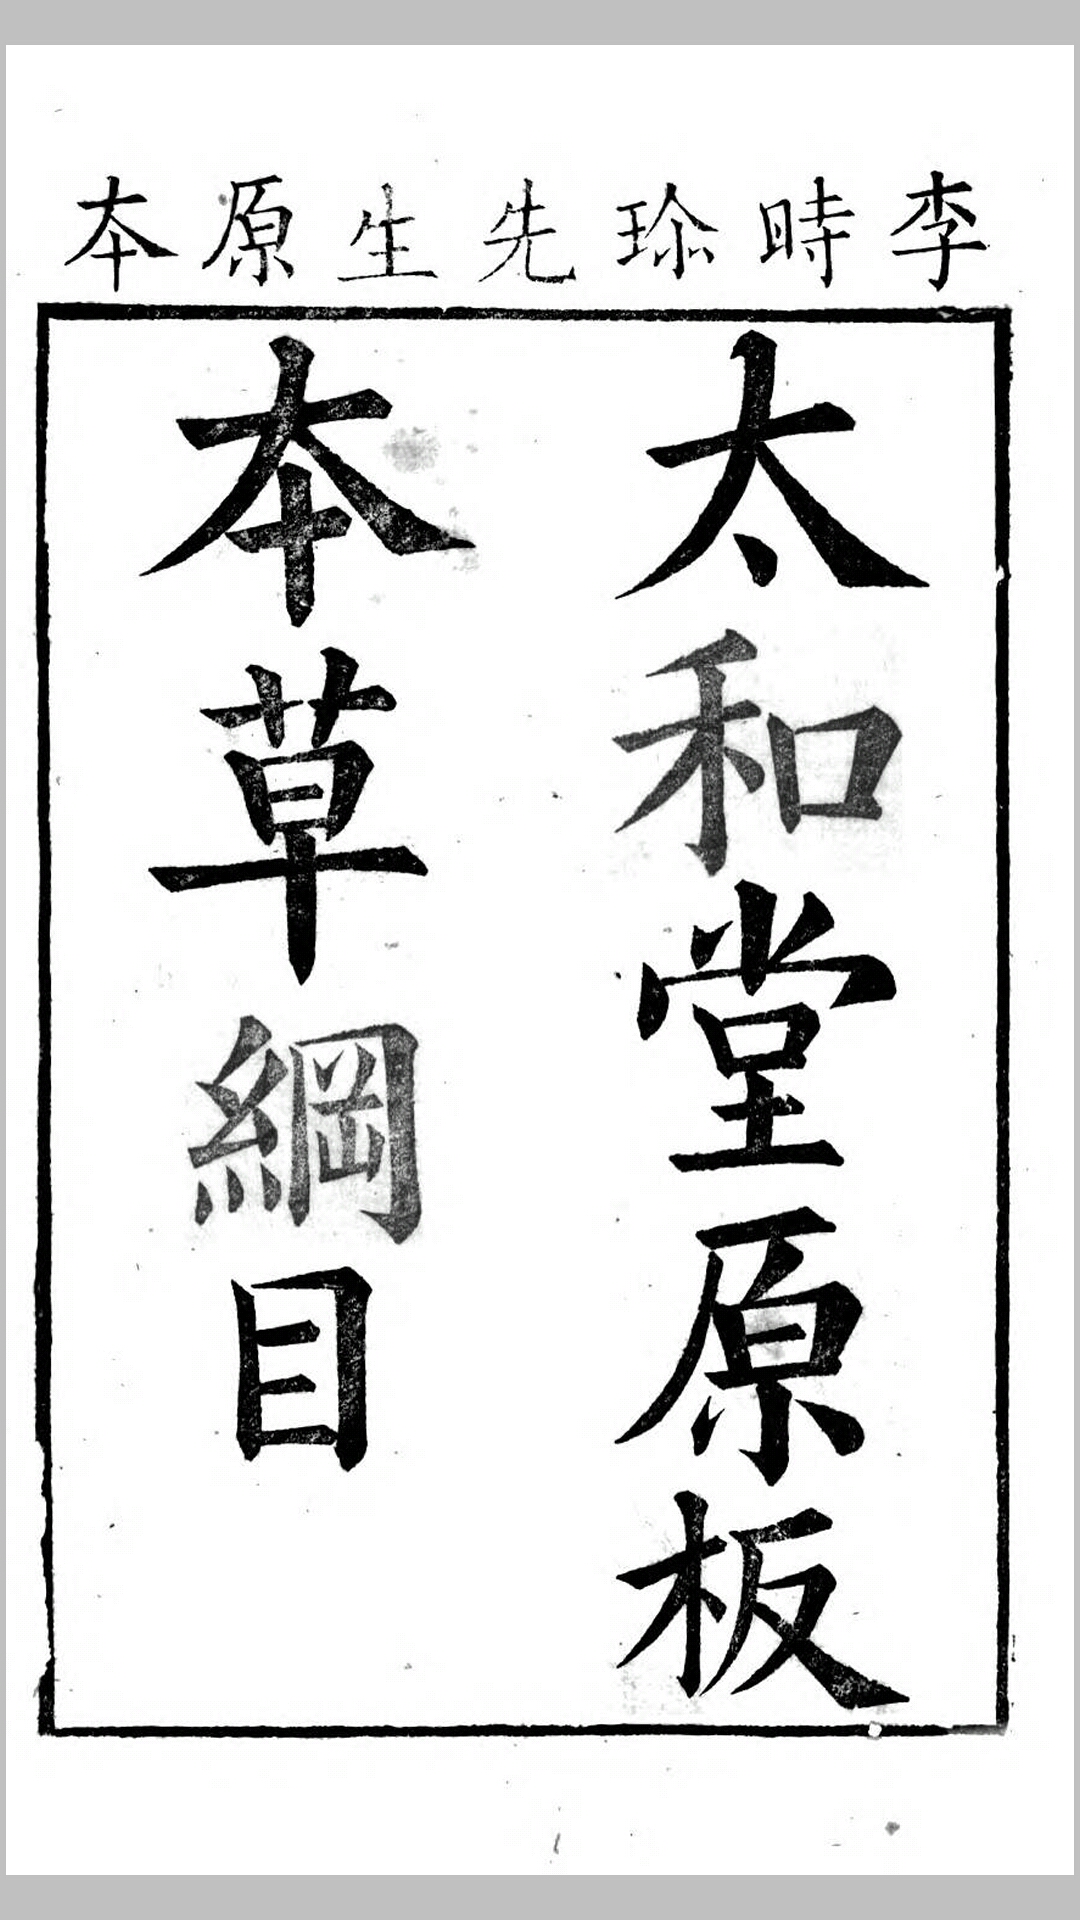 李時珎先生原本
太和堂原板
本草綱目